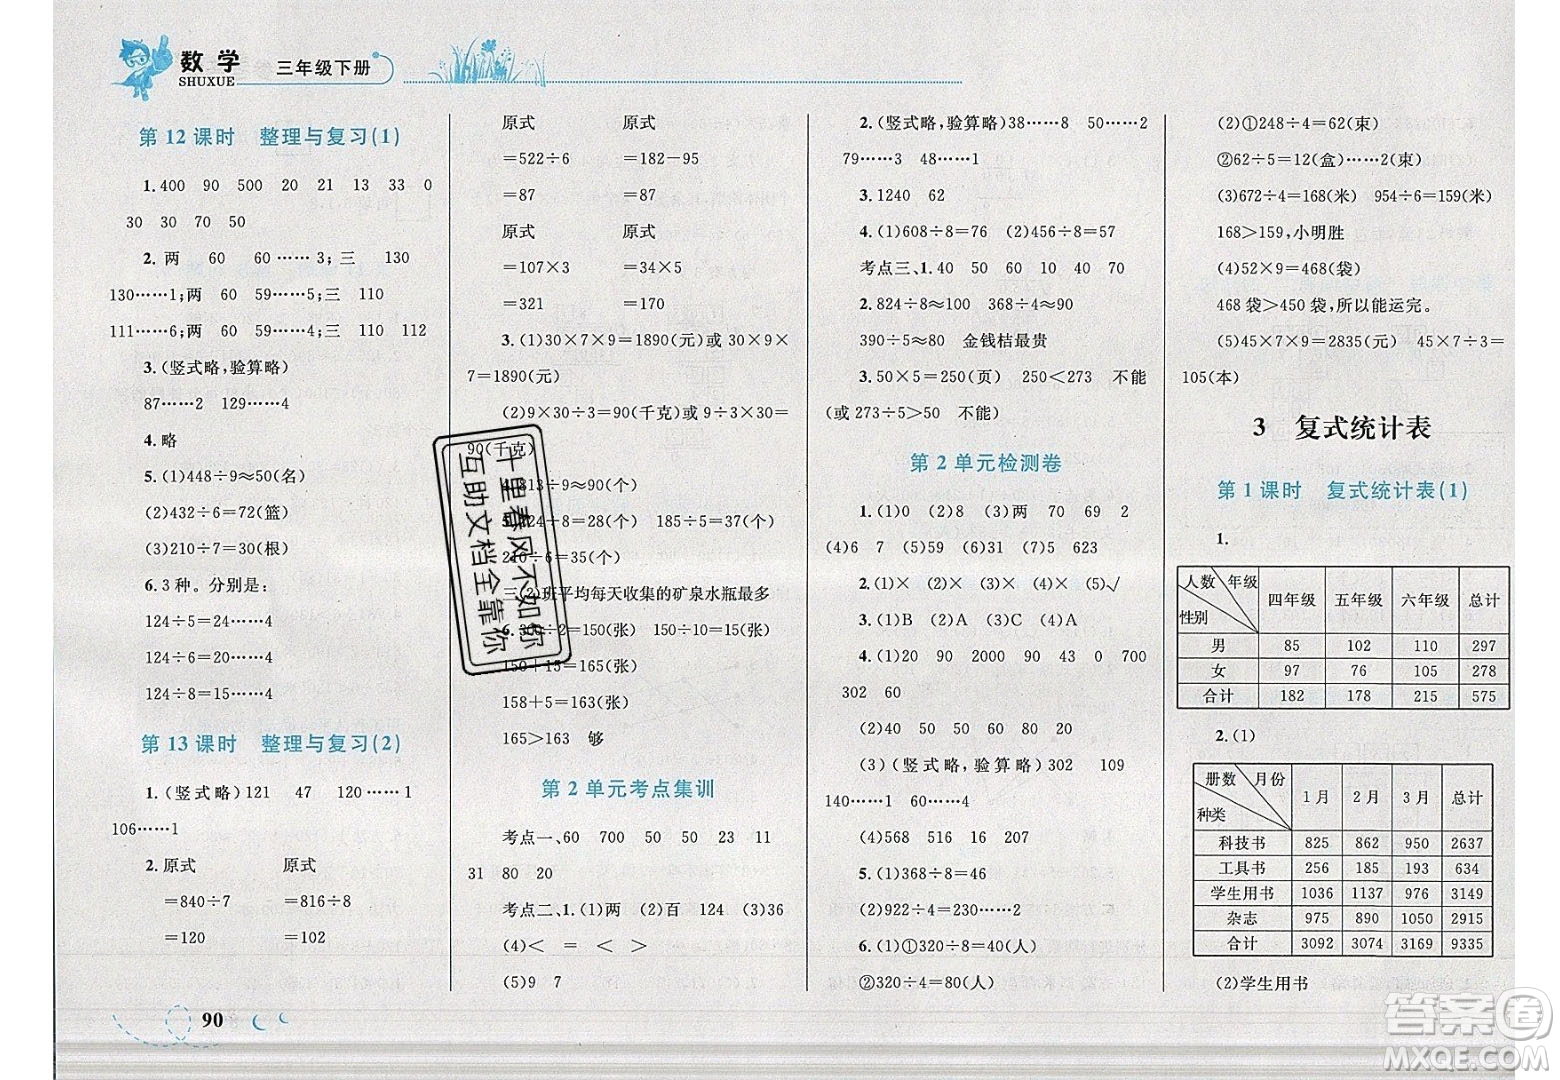 数学
SHUXUE
三年级下册
第 12 课时 整理与复习(1)
1.400 90 500 20 21 13 33 0
30 30 70 50
2. 两 60 60……3;三 130
130……1;两 60 59……5;三 110
111……6;两 60 59……4;三 110 112
3.(竖式略,验算略)
87……2 129……4
4.略
5.(1)448÷9≈50(名)
(2)432÷6=72(篮)
(3)210÷7=30(根)
6.3 种。分别是:
124÷5=24……4
124÷6=20……4
124÷8=15……4
第 13 课时 整理与复习(2)
1.(竖式略)121 47 120……1
106……1
2.原式 原式
=840÷7 =816÷8
=120 =102
原式 原式
=522÷6 =182-95
=87 =87
原式 原式
=107×3 =850÷5
=321 =170
3.(1)30×7×9=1890(元)或 30×9×
7=1890(元)
(2)9×30÷3=90(千克)或 9÷3×30=
90(千克)
4.813÷9≈90(个)
5.224÷8=28(个) 185÷5=37(个)
210÷6=35(个)
三(2)班平均每天收集的矿泉水瓶最多
6.300÷2=150(张) 150÷10=15(张)
150+15=165(张)
158+5=163(张)
165>163 够
第 2 单元考点集训
考点一、60 700 50 50 23 11
31 80 20
考点二、1.(1)两 (2)百 124 (3)36
(4)< = < >
(5)9 7
2.(竖式略,验算略)38……8 50……2
79……3 48……1
3.1240 62
4.(1)608÷8=76 (2)456÷8=57
考点三、1.40 50 60 10 40 70
2.824÷8≈100 368÷4≈90
390÷5≈80 金钱桔最贵
3.50×5=250(页) 250<273 不能
(或 273÷5>50 不能)
第 2 单元检测卷
1.(1)0 (2)8 (3)两 70 69 2
(4)6 7 (5)59 (6)31 (7)5 623
2.(1)× (2)× (3)× (4)× (5)√
3.(1)B (2)A (3)C (4)A
4.(1)20 90 2000 90 43 0 700
302 60
(2)40 50 50 60 80 20
(3)(竖式略,验算略)302 109
140……1 60……4
(4)568 516 16 207
5.(1)368÷8=46
(2)922÷4=230……2
6.(1)①320÷8=40(人)
②320÷4=80(人)
(2)①248÷4=62(束)
②62÷5=12(盒)……2(束)
(3)672÷4=168(米) 954÷6=159(米)
168>159,小明胜
(4)52×9=468(袋)
468 袋>450 袋,所以能运完。
(5)45×7×9=2835(元) 45×7÷3=
105(本)
3 复式统计表
第 1 课时 复式统计表(1)
1.
人数 年级 性别 四年级 五年级 六年级 总计
男 85 102 110 297
女 97 76 105 278
合计 182 178 215 575
2.(1)
册数 月份 种类 1月 2月 3月 总计
科技书 825 862 950 2637
工具书 256 185 193 634
学生用书 1036 1137 976 3149
杂志 975 890 1050 2915
合计 3092 3074 3169 9335
(2)学生用书
90
十里春风不如你
互助文档全靠你
答案圈
MXQE.COM